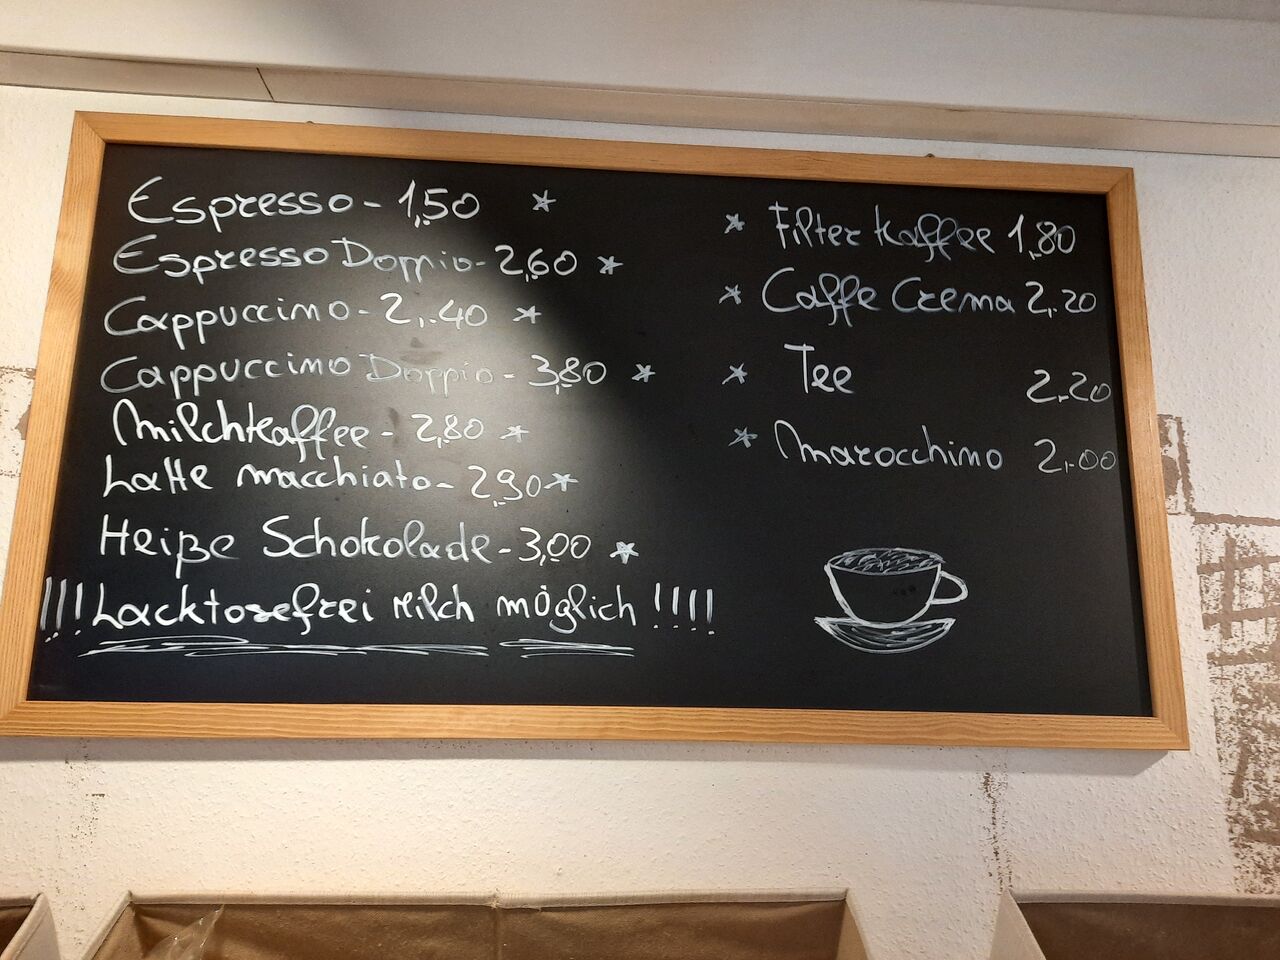 Espresso - 1,50 *
Espresso Doppio - 2,60 *
Cappuccino - 2,40 *
Cappuccino Doppio - 3,80 *
Milchkaffee - 2,80 *
Latte macchiato - 2,90 *
Heiße Schokolade - 3,00 *
!!! Lacktosefrei Milch möglich !!!!
* Filter Kaffee 1,80
* Caffe Crema 2,20
* Tee 2,20
* Marocchino 2,00